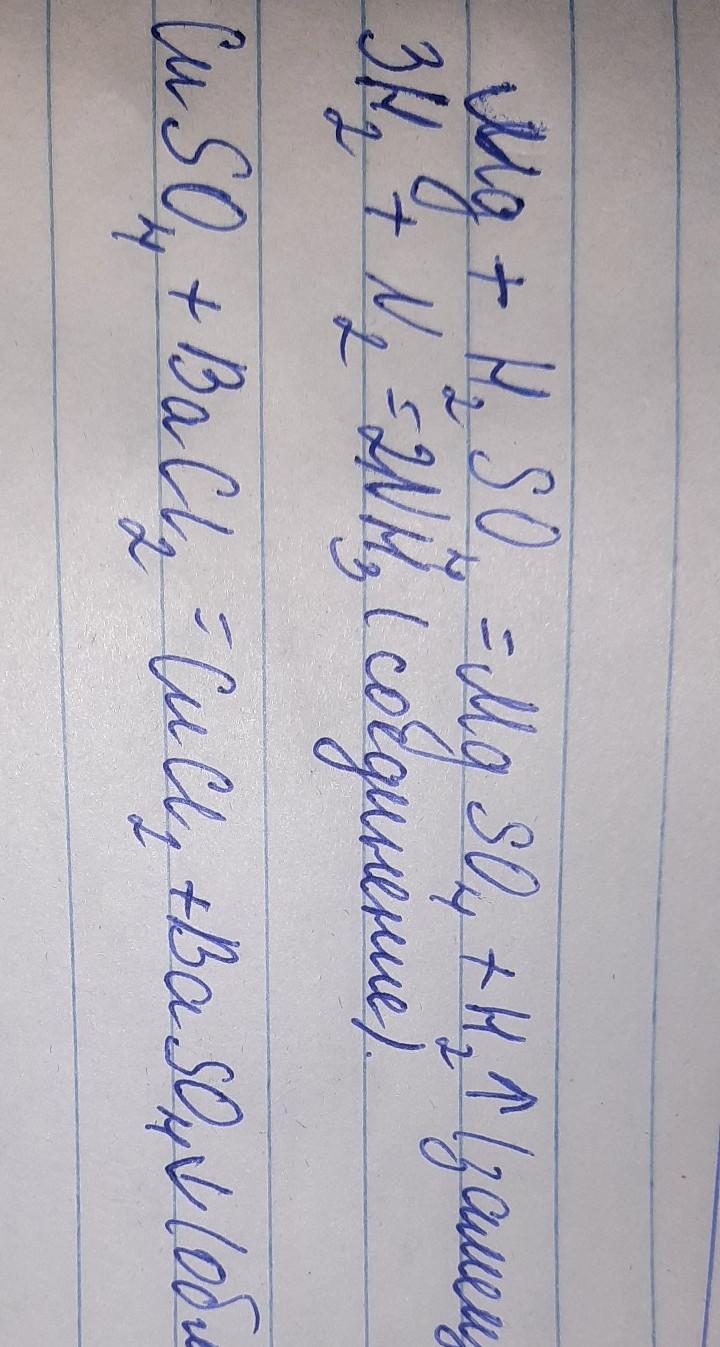 Mg + H₂SO₄ = MgSO₄ + H₂↑ (замещ
3H₂ + N₂ = 2NH₃ (соединение).
CuSO₄ + BaCl₂ = CuCl₂ + BaSO₄↓ (обм